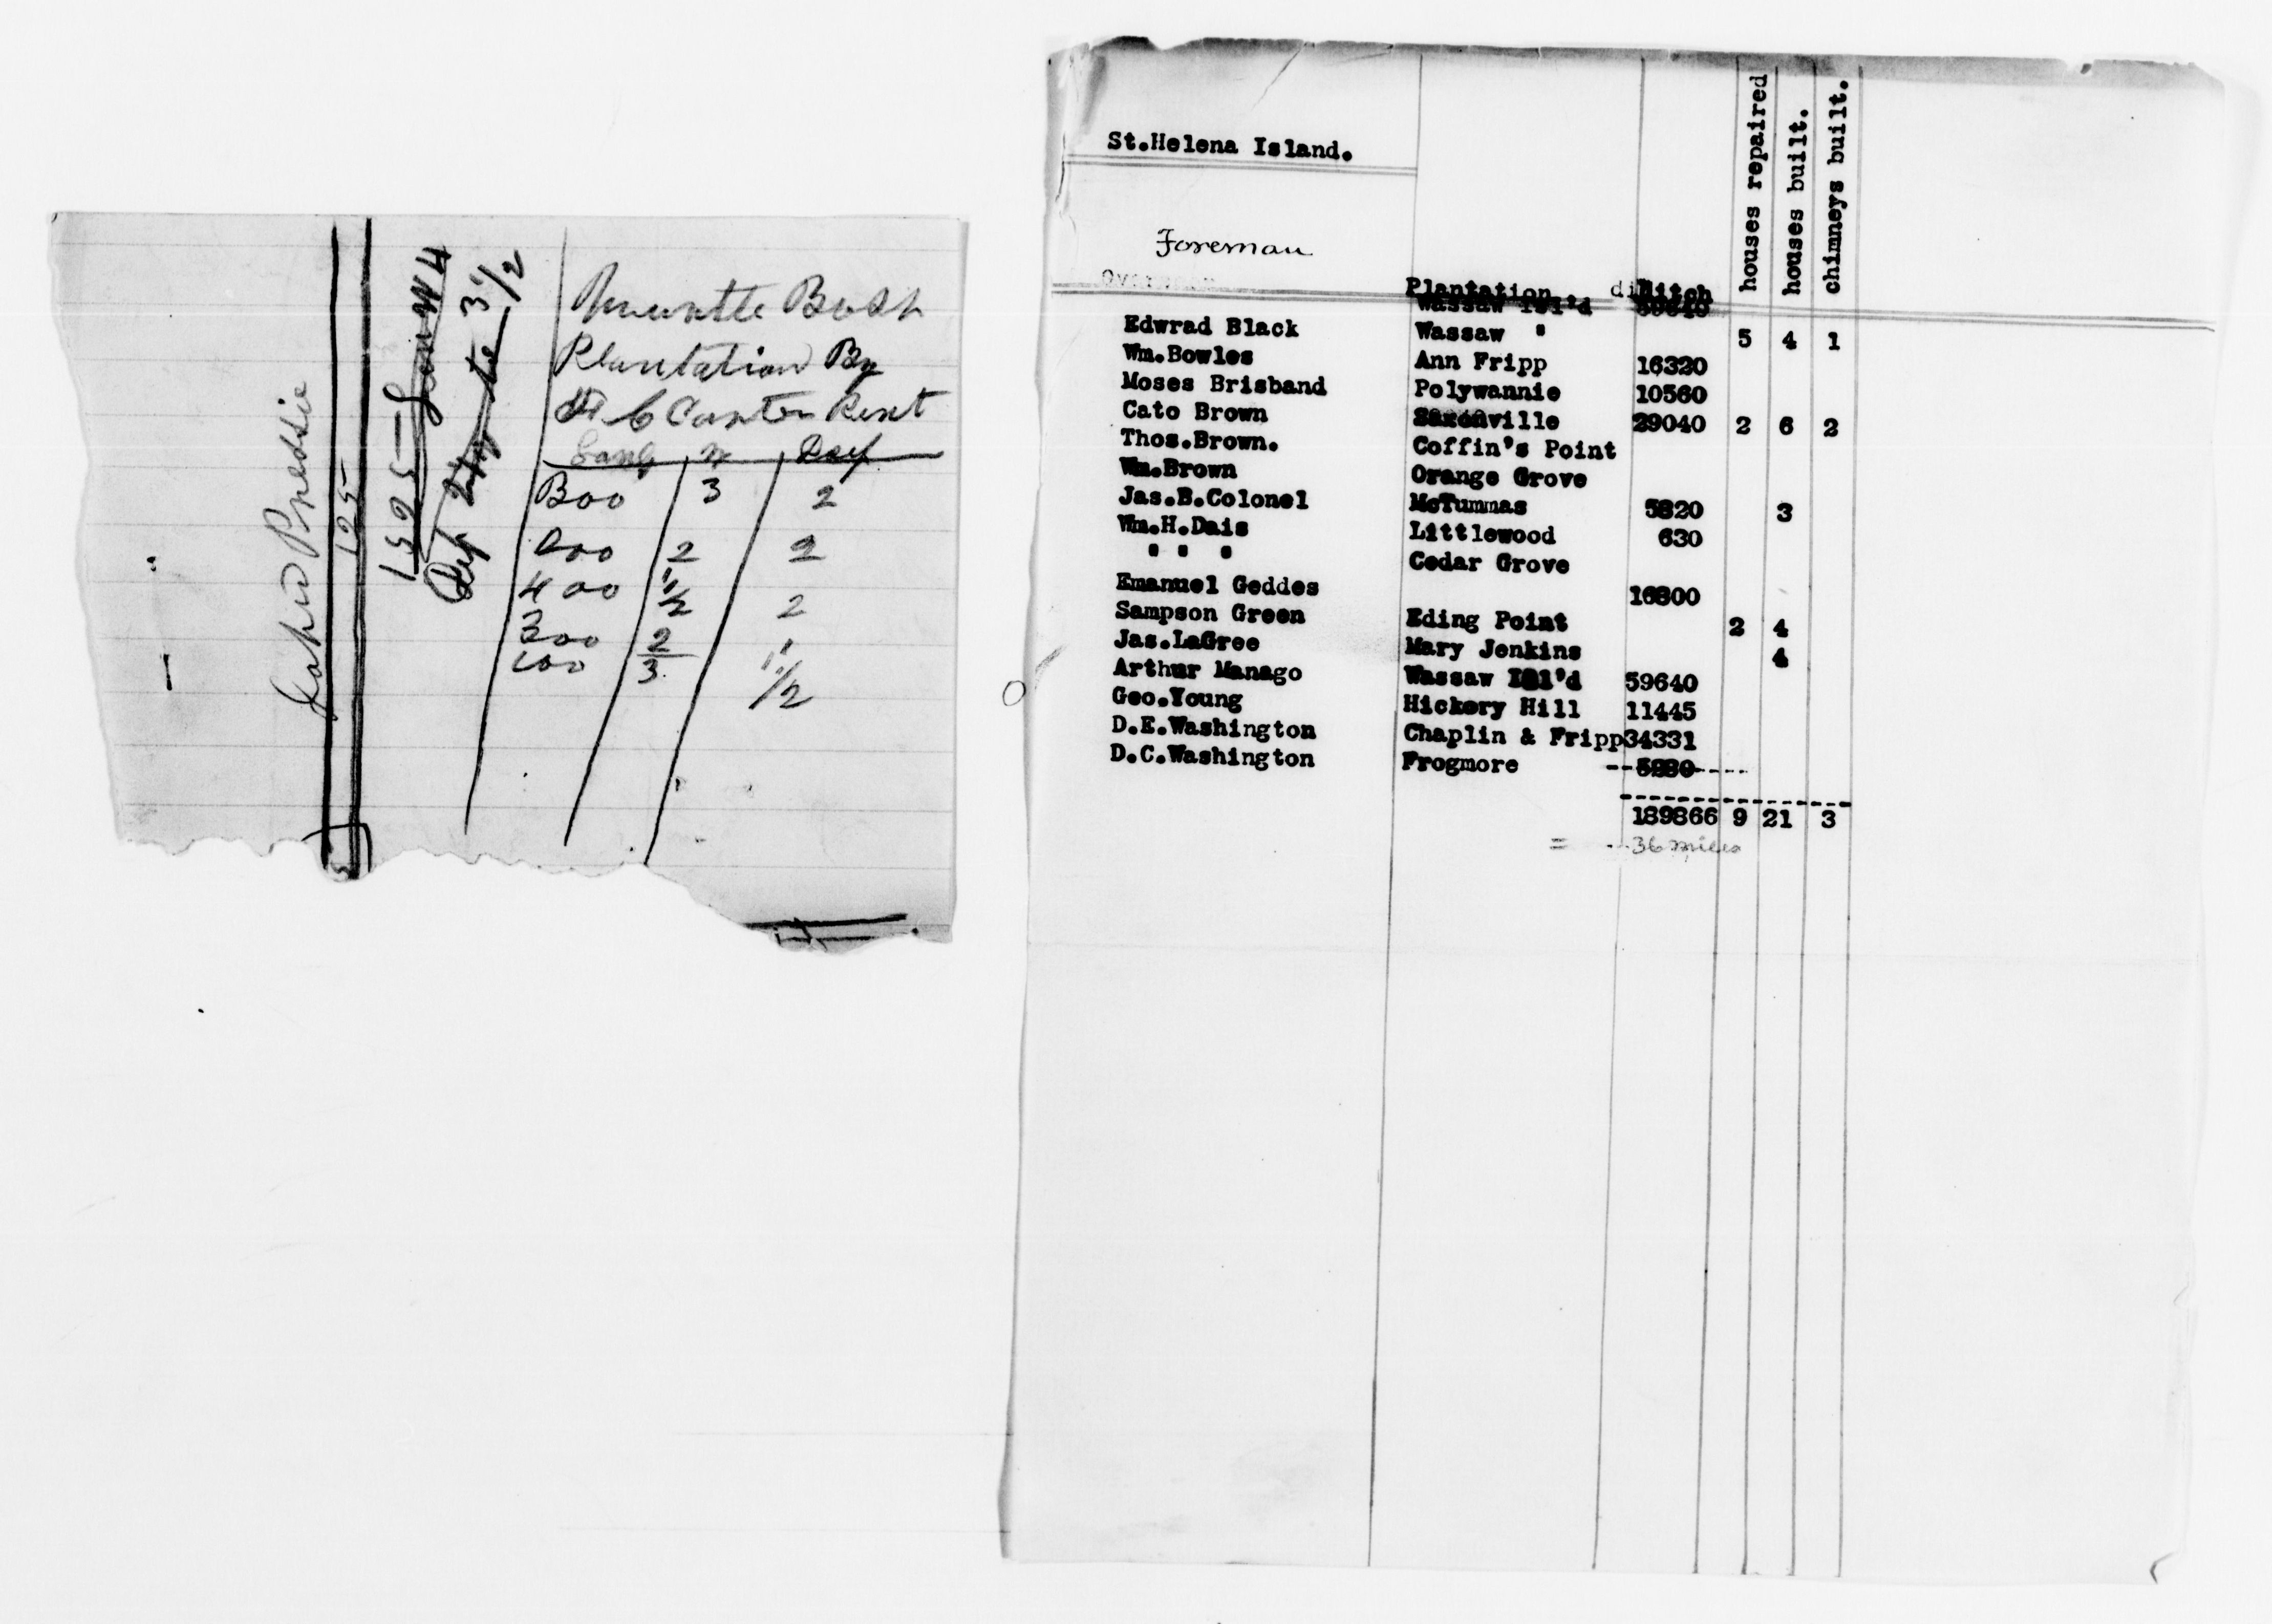 Muntle Bush
Plantation By
H C Canter Rent
Long | W | Deep
800 | 3 | 2
200 | 2 | 2
400 | 1/2 | 2
300 | 2 | 1
100 | 3 | 1 1/2
1525 — Long W 4
Dep 3 1/2
125
St.Helena Island.
Foreman
Plantation
Ditch
houses repaired
houses built.
chimneys built.
Wassaw Isl'd 59640
Edwrad Black Wassaw " 5 4 1
Wm.Bowles Ann Fripp 16320
Moses Brisband Polywannie 10560
Cato Brown ville 29040 2 6 2
Thos.Brown. Coffin's Point
Wm.Brown Orange Grove
Jas.B.Colonel McTummas 5820 3
Wm.H.Dais Littlewood 630
" " " Cedar Grove
Emanuel Geddes 16800
Sampson Green Eding Point 2 4
Jas.LaGree Mary Jenkins 4
Arthur Manago Wassaw Isl'd 59640
Geo.Young Hickory Hill 11445
D.E.Washington Chaplin & Fripp 34331
D.C.Washington Frogmore
189866 9 21 3
= 36 miles